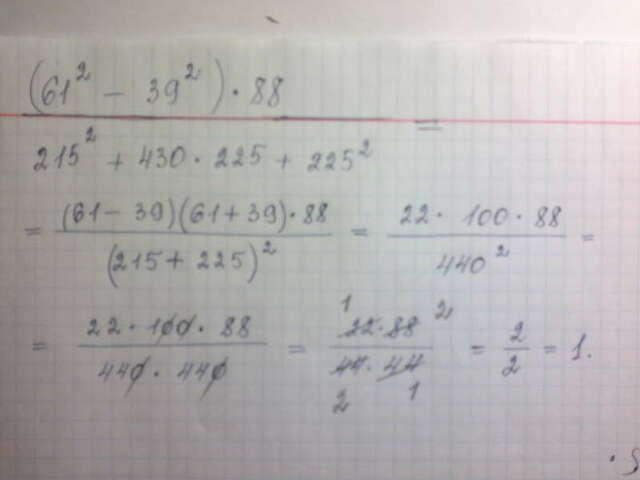 (61² − 39²) · 88
=
215² + 430 · 225 + 225²
= (61 − 39)(61 + 39) · 88 / (215 + 225)² = 22 · 100 · 88 / 440² =
= 22 · 100 · 88 / 440 · 440 = 22 · 88 / 44 · 44 = 2 / 2 = 1.
1 2
2 1